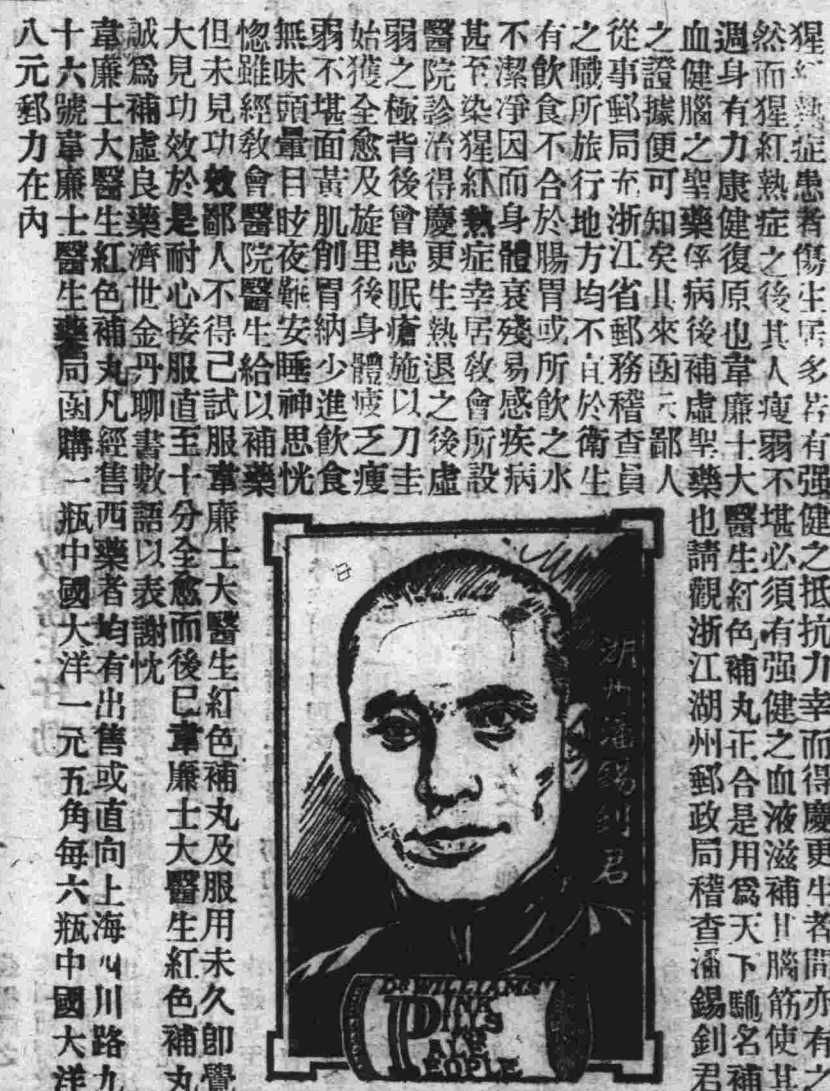 猩紅熱症患者傷生居多若有强健之抵抗力幸而得慶更生者間亦有之
然而猩紅熱症之後其人瘦弱不堪必須有强健之血液滋補其腦筋使其
週身有力康健復原也韋廉士大醫生紅色補丸正合是用爲天下馳名補
血健腦之聖藥係病後補虛聖藥也請觀浙江湖州郵政局稽查潘錫釗君
之證據便可知矣其來函云鄙人
從事郵局充浙江省郵務稽查員
之職所旅行地方均不宜於衛生
有飲食不合於腸胃或所飲之水
不潔凈因而身體衰殘易感疾病
甚至染猩紅熱症幸居敎會所設
醫院診治得慶更生熱退之後虛
弱之極背後曾患眠瘡施以刀圭
始獲全愈及旋里後身體疲乏瘦
弱不堪面黃肌削胃納少進飲食
無味頭暈目眩夜難安睡神思恍
惚雖經敎會醫院醫生給以補藥
但未見功效鄙人不得已試服韋廉士大醫生紅色補丸及服用未久卽覺
大見功效於是耐心接服直至十分全愈而後已韋廉士大醫生紅色補丸
誠爲補虛良藥濟世金丹聊書數語以表謝忱
韋廉士大醫生紅色補丸凡經售西藥者均有出售或直向上海四川路九
十六號韋廉士醫生藥局函購一瓶中國大洋一元五角每六瓶中國大洋
八元郵力在內
湖州潘錫釗君
DR WILLIAMS'
PINK
PILLS
PALE
PEOPLE